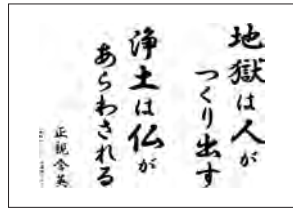 地獄は人が
つくり出す
浄土は仏が
あらわされる